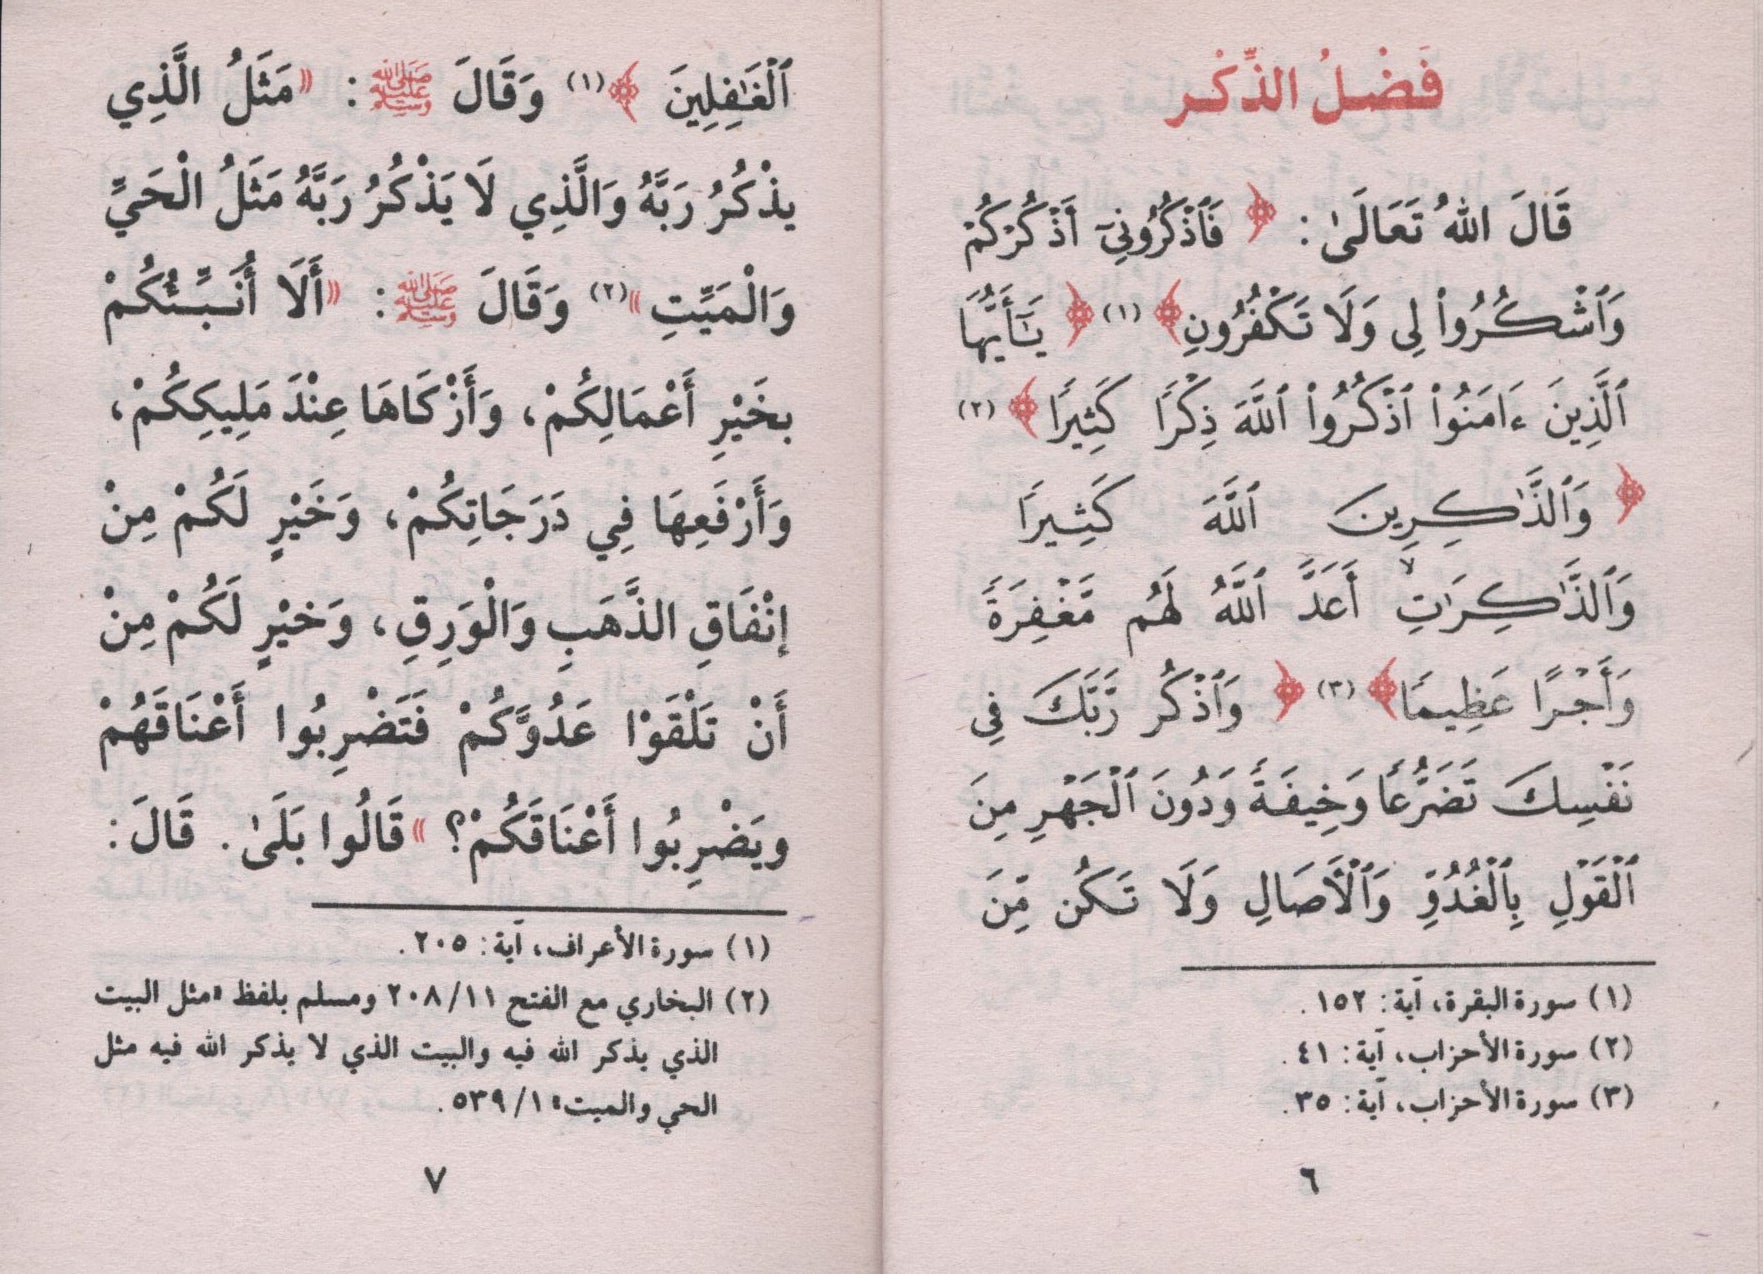 فَضْلُ الذِّكْرِ
قَالَ اللهُ تَعَالَىٰ: ﴿ فَٱذْكُرُونِىٓ أَذْكُرْكُمْ
وَٱشْكُرُوا۟ لِى وَلَا تَكْفُرُونِ﴾ (١) ﴿ يَـٰٓأَيُّهَا
ٱلَّذِينَ ءَامَنُوا۟ ٱذْكُرُوا۟ ٱللَّهَ ذِكْرًا كَثِيرًا﴾ (٢)
﴿ وَٱلذَّٰكِرِينَ ٱللَّهَ كَثِيرًا
وَٱلذَّٰكِرَٰتِۙ أَعَدَّ ٱللَّهُ لَهُم مَّغْفِرَةً
وَأَجْرًا عَظِيمًا﴾ (٣) ﴿ وَٱذْكُر رَّبَّكَ فِى
نَفْسِكَ تَضَرُّعًا وَخِيفَةً وَدُونَ ٱلْجَهْرِ مِنَ
ٱلْقَوْلِ بِٱلْغُدُوِّ وَٱلْأَصَالِ وَلَا تَكُن مِّنَ
(١) سورة البقرة، آية: ١٥٢.
(٢) سورة الأحزاب، آية: ٤١.
(٣) سورة الأحزاب، آية: ٣٥.
٦
ٱلْغَـٰفِلِينَ ﴾ (١) وَقَالَ ﷺ: «مَثَلُ الَّذِي
يذْكُرُ رَبَّهُ وَالَّذِي لَا يَذْكُرُ رَبَّهُ مَثَلُ الْحَيِّ
وَالْمَيِّتِ» (٢) وَقَالَ ﷺ: «أَلَا أُنَبِّئُكُمْ
بخَيْرِ أَعْمَالِكُمْ، وَأَزْكَاهَا عِنْدَ مَلِيكِكُمْ،
وَأَرْفَعِهَا فِي دَرَجَاتِكُمْ، وَخَيْرٍ لَكُمْ مِنْ
إنْفَاقِ الذَّهَبِ وَالْوَرِقِ، وَخيْرٍ لَكُمْ مِنْ
أَنْ تَلْقَوْا عَدُوَّكُمْ فَتَضْرِبُوا أَعْنَاقَهُمْ
ويَضْرِبُوا أَعْنَاقَكُمْ؟ » قَالُوا بَلَىٰ. قَالَ:
(١) سورة الأعراف، آية: ٢٠٥.
(٢) البخاري مع الفتح ٢٠٨/١١ ومسلم بلفظ «مثل البيت
الذي يذكر الله فيه والبيت الذي لا يذكر الله فيه مثل
الحي والميت» ٥٣٩/١.
٧